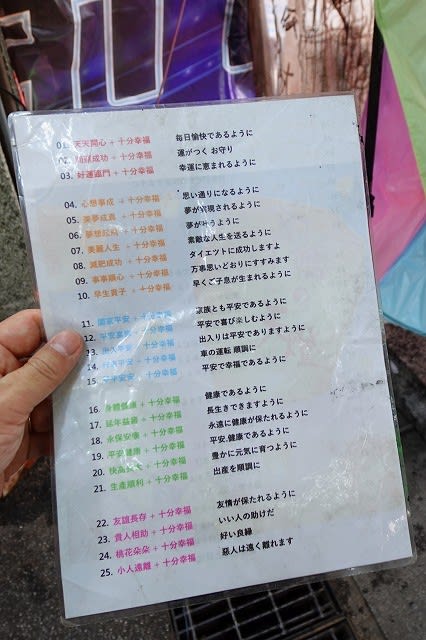 01. 天天開心 + 十分幸福 毎日愉快であるように
02. 功成功 + 十分幸福 運がつく お守り
03. 好運連門 + 十分幸福 幸運に恵まれるように
04. 心想事成 + 十分幸福 思い通りになるように
05. 美夢成真 + 十分幸福 夢が実現されるように
06. 夢想起飛 + 十分幸福 夢が叶うように
07. 美麗人生 + 十分幸福 素敵な人生を送るように
08. 減肥成功 + 十分幸福 ダイエットに成功しますよ
09. 事事順心 + 十分幸福 万事思いどおりにすすみます
10. 早生貴子 + 十分幸福 早くご子息が生まれるように
11. 闔家平安 + 十分幸福 家族とも平安であるように
12. 平安喜樂 + 十分幸福 平安で喜び楽しむように
13. 出入平安 + 十分幸福 出入りは平安でありますように
14. 行車平安 + 十分幸福 車の運転 順調に
15. 平平安安 + 十分幸福 平安で幸福であるように
16. 身體健康 + 十分幸福 健康であるように
17. 延年益壽 + 十分幸福 長生きできますように
18. 永保安康 + 十分幸福 永遠に健康が保たれるように
19. 平安健康 + 十分幸福 平安,健康であるように
20. 快高長大 + 十分幸福 豊かに元気に育つように
21. 生產順利 + 十分幸福 出産を順調に
22. 友誼長存 + 十分幸福 友情が保たれるように
23. 貴人相助 + 十分幸福 いい人の助けだ
24. 桃花朵朵 + 十分幸福 好い良縁
25. 小人遠離 + 十分幸福 惡人は遠く離れます